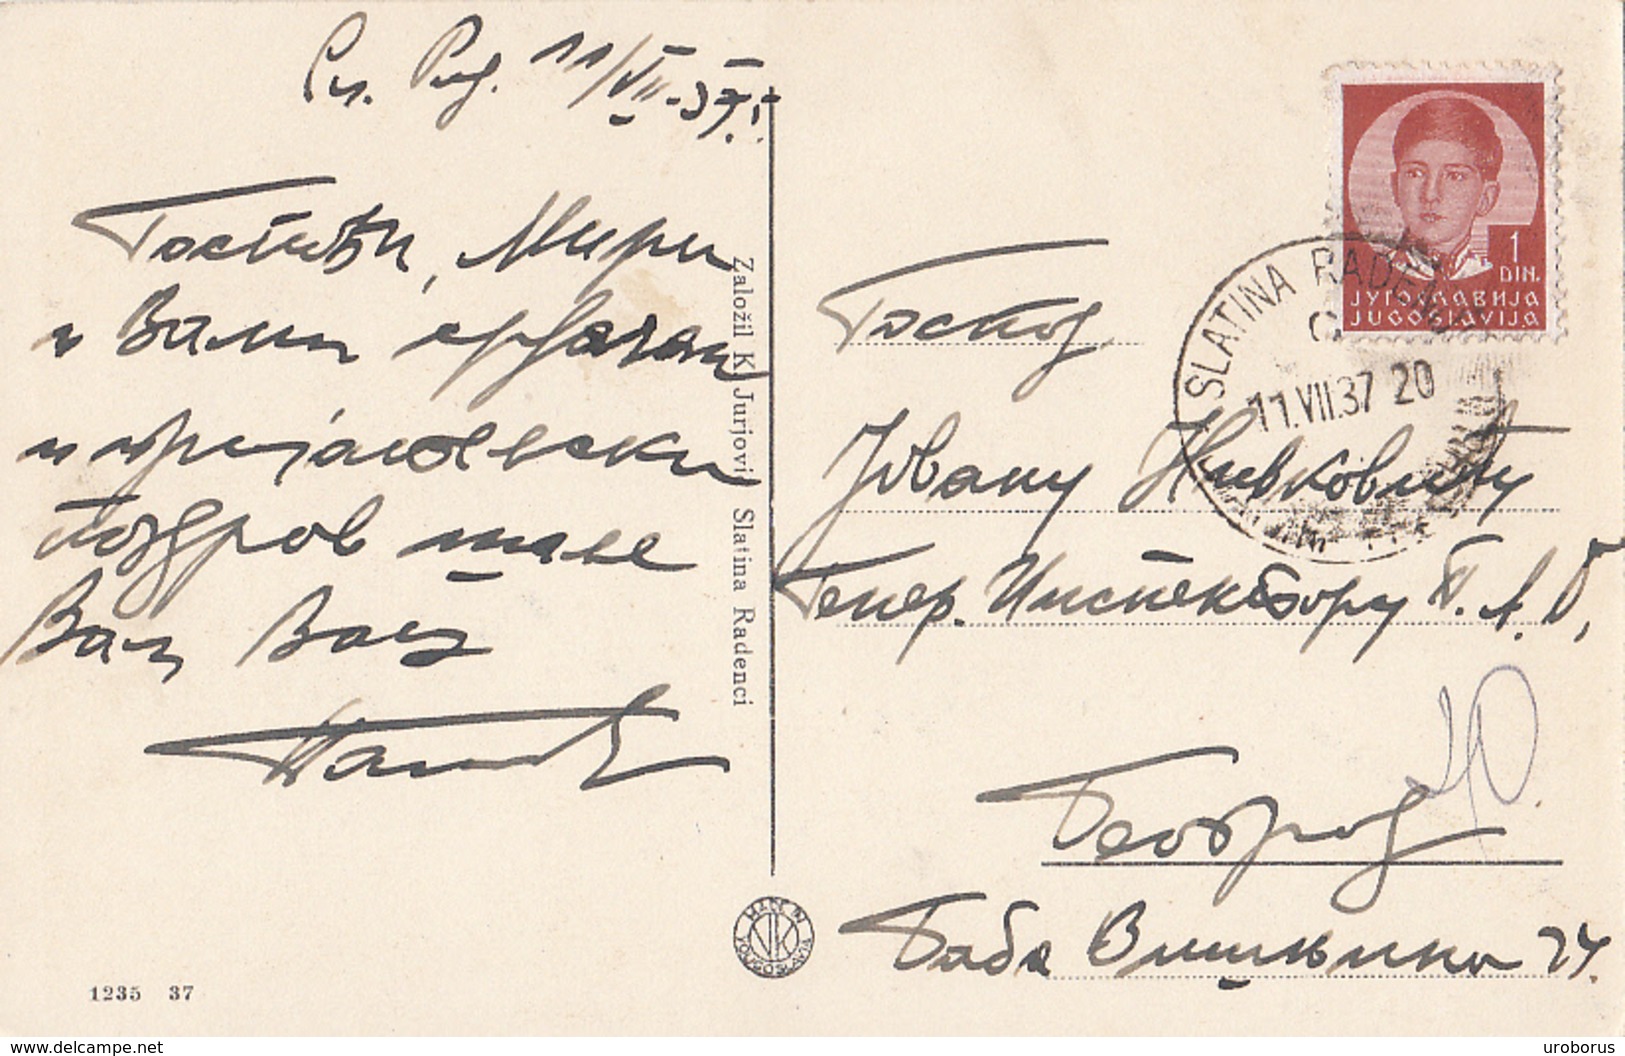 Сл. Рад. 11/VII-37.г.
Госпођи, Мири
и Вама срдачан
и пријатељски
поздрав шаље
Ваш Војa
Založil K Jurjovi Slatina Radenci
SLATINA RADENCI
11.VII.37 20
1
DIN.
ЈУГОСЛАВИЈА
JUGOSLAVIJA
Господ.
Јовану Живковићу
Генер. Инспектору П. А. Б.
Београд
Баба Вишњина 24.
MADE IN YOUGOSLAVIA
1235 37
delcampe.net
uroborus